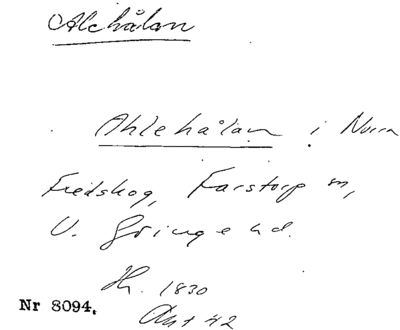 Alehålan
Ahlehålan i Norra
Fredskog, Farstorp sn,
V. Göinge hd.
Hr. 1830
Akt 42
Nr 8094.